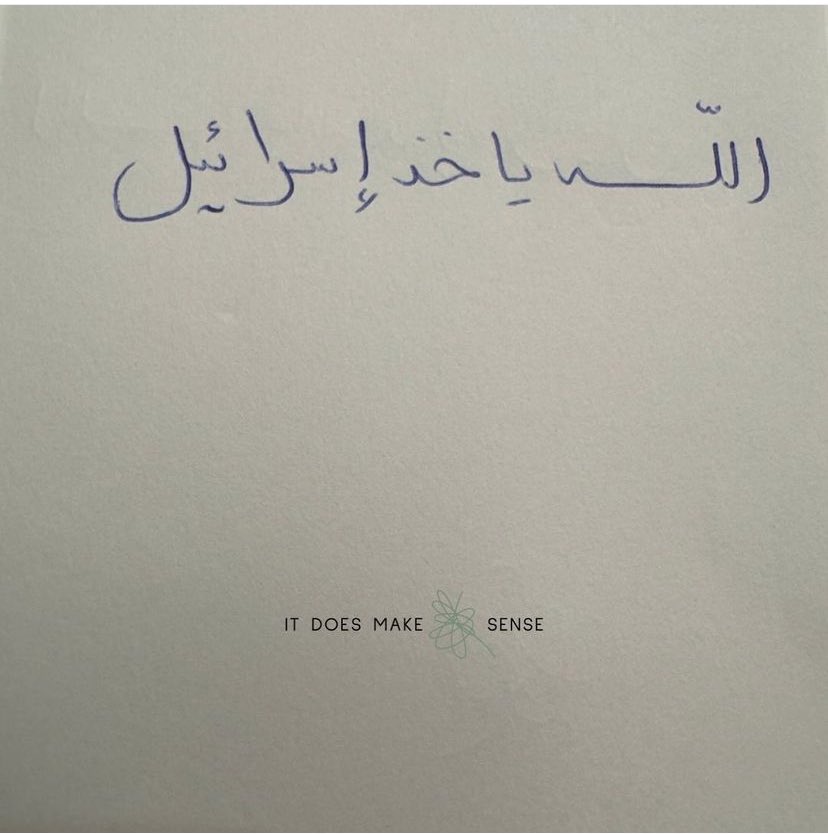 اللّه ياخذ إسرائيل
IT DOES MAKE SENSE